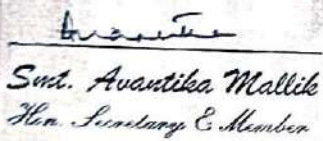 Smt. Avantika Mallik
Hon. Secretary & Member